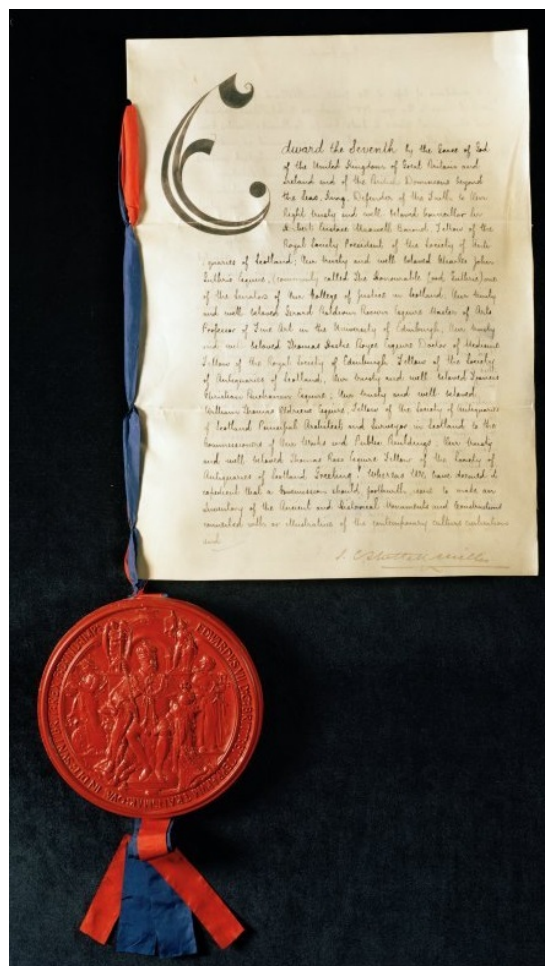 Edward the Seventh by the Grace of God
of the United Kingdom of Great Britain and
Ireland and of the British Dominions beyond
the Seas, King, Defender of the Faith to Our
Right trusty and well beloved Councillor Sir
Herbert Eustace Maxwell Baronet, Fellow of the
Royal Society President of the Society of Anti-
quaries of Scotland; Our trusty and well beloved Charles John
Guthrie Esquire, (commonly called The Honourable Lord Guthrie) one
of the Senators of Our College of Justice in Scotland; Our trusty
and well beloved Gerard Baldwin Brown Esquire Master of Arts
Professor of Fine Art in the University of Edinburgh, Our trusty
and well beloved Thomas Hastie Bryce Esquire Doctor of Medicine
Fellow of the Royal Society of Edinburgh Fellow of the Society
of Antiquaries of Scotland, Our trusty and well beloved Francis
Christian Buchanan Esquire; Our trusty and well beloved
William Thomas Oldrieve Esquire, Fellow of the Society of Antiquaries
of Scotland Principal Architect and Surveyor in Scotland to the
Commissioners of Our Works and Public Buildings; Our trusty
and well beloved Thomas Ross Esquire Fellow of the Society of
Antiquaries of Scotland Greeting! Whereas We have deemed it
expedient that a Commission should forthwith issue to make an
Inventory of the Ancient and Historical Monuments and Constructions
connected with or illustrative of the contemporary culture civilisation
and
EDWARDVS VII D: G: BRITT: